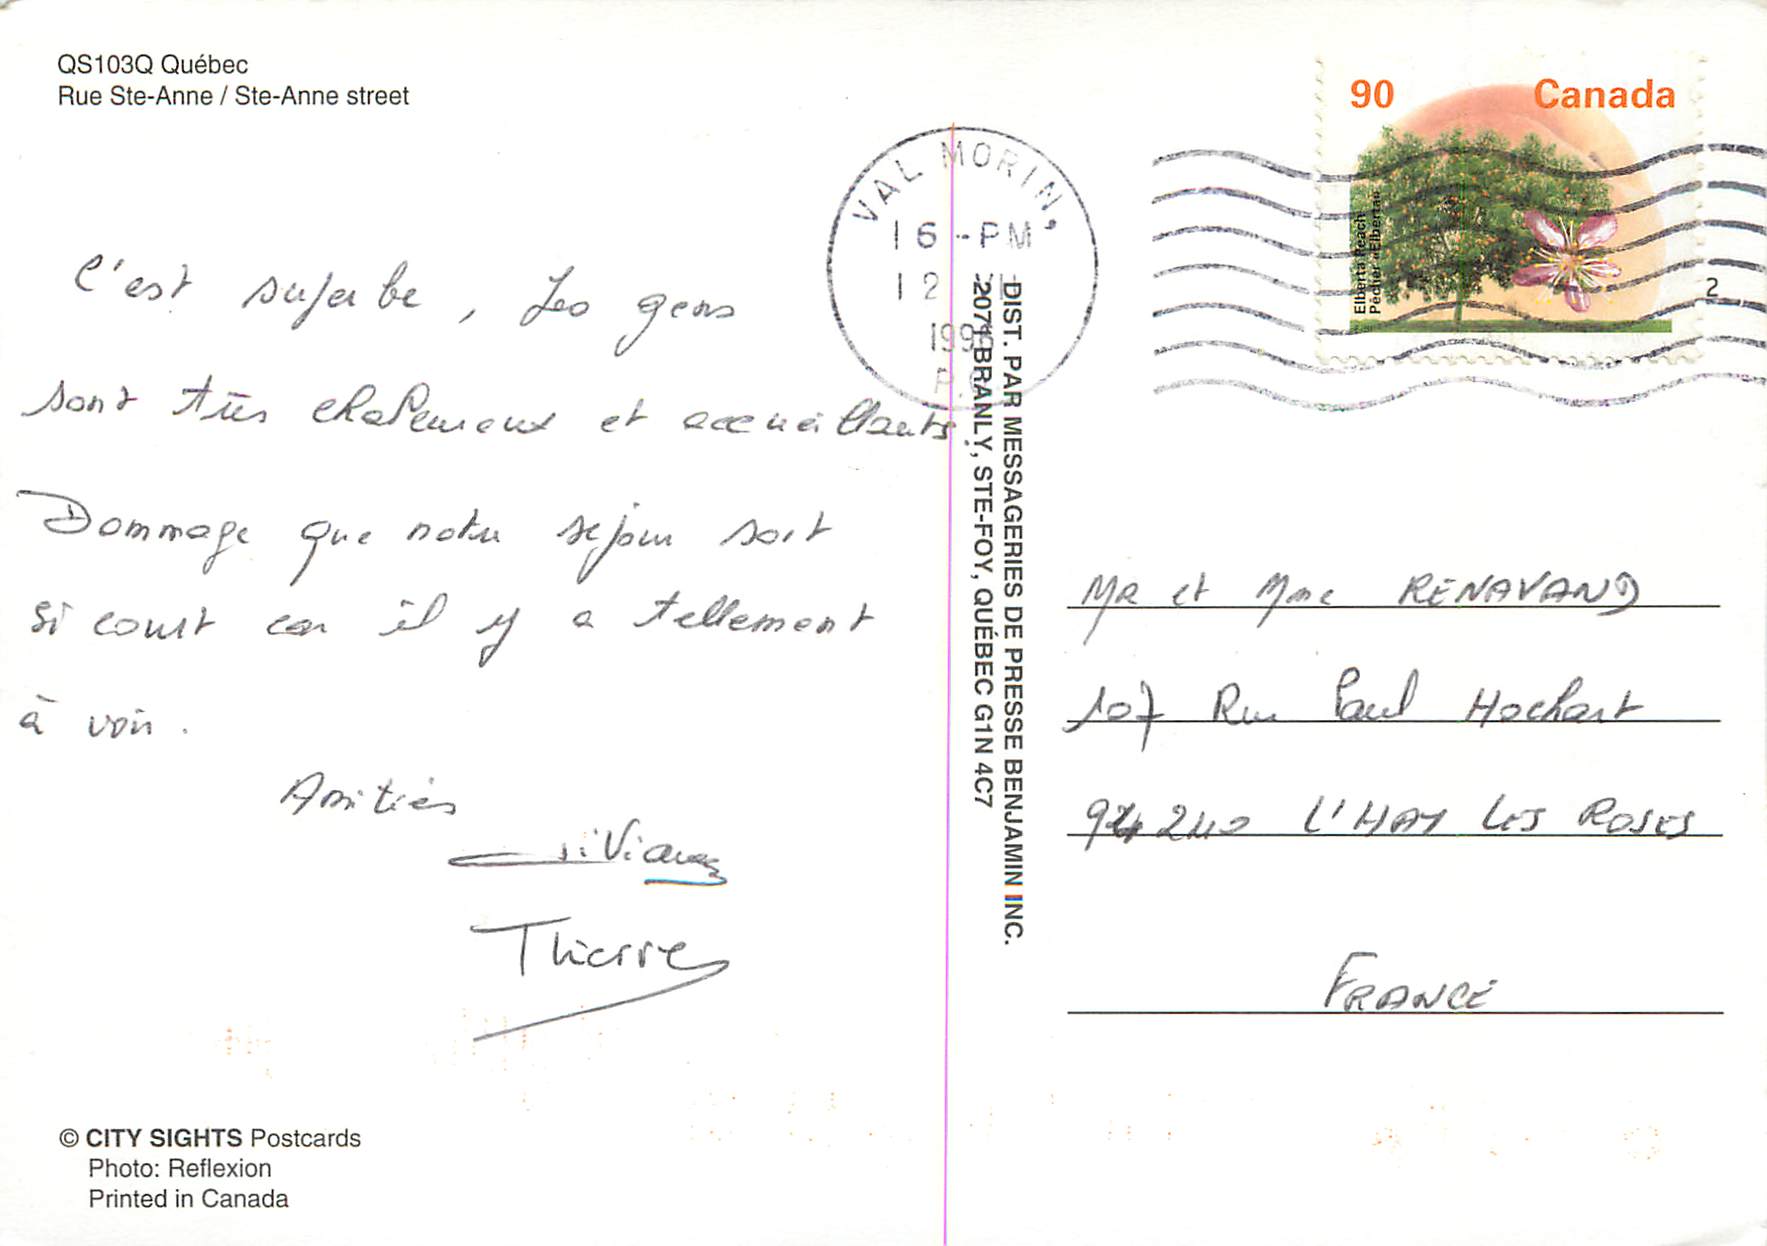 QS103Q Québec
Rue Ste-Anne / Ste-Anne street
C'est superbe, Les gens
sont très chaleureux et accueillants.
Dommage que notre séjour soit
si court car il y a tellement
à voir.
Amitiés
Thierry
© CITY SIGHTS Postcards
Photo: Reflexion
Printed in Canada
DIST. PAR MESSAGERIES DE PRESSE BENJAMIN INC.
BRANLY, STE-FOY, QUÉBEC G1N 4C7
VAL MORIN,
16 -PM
12
90 Canada
Elberta Peach
Pêcher «Elberta»
2
MR et Mme RENAVAND
107 Rue Paul Hochart
94240 L'HAY LES ROSES
FRANCE